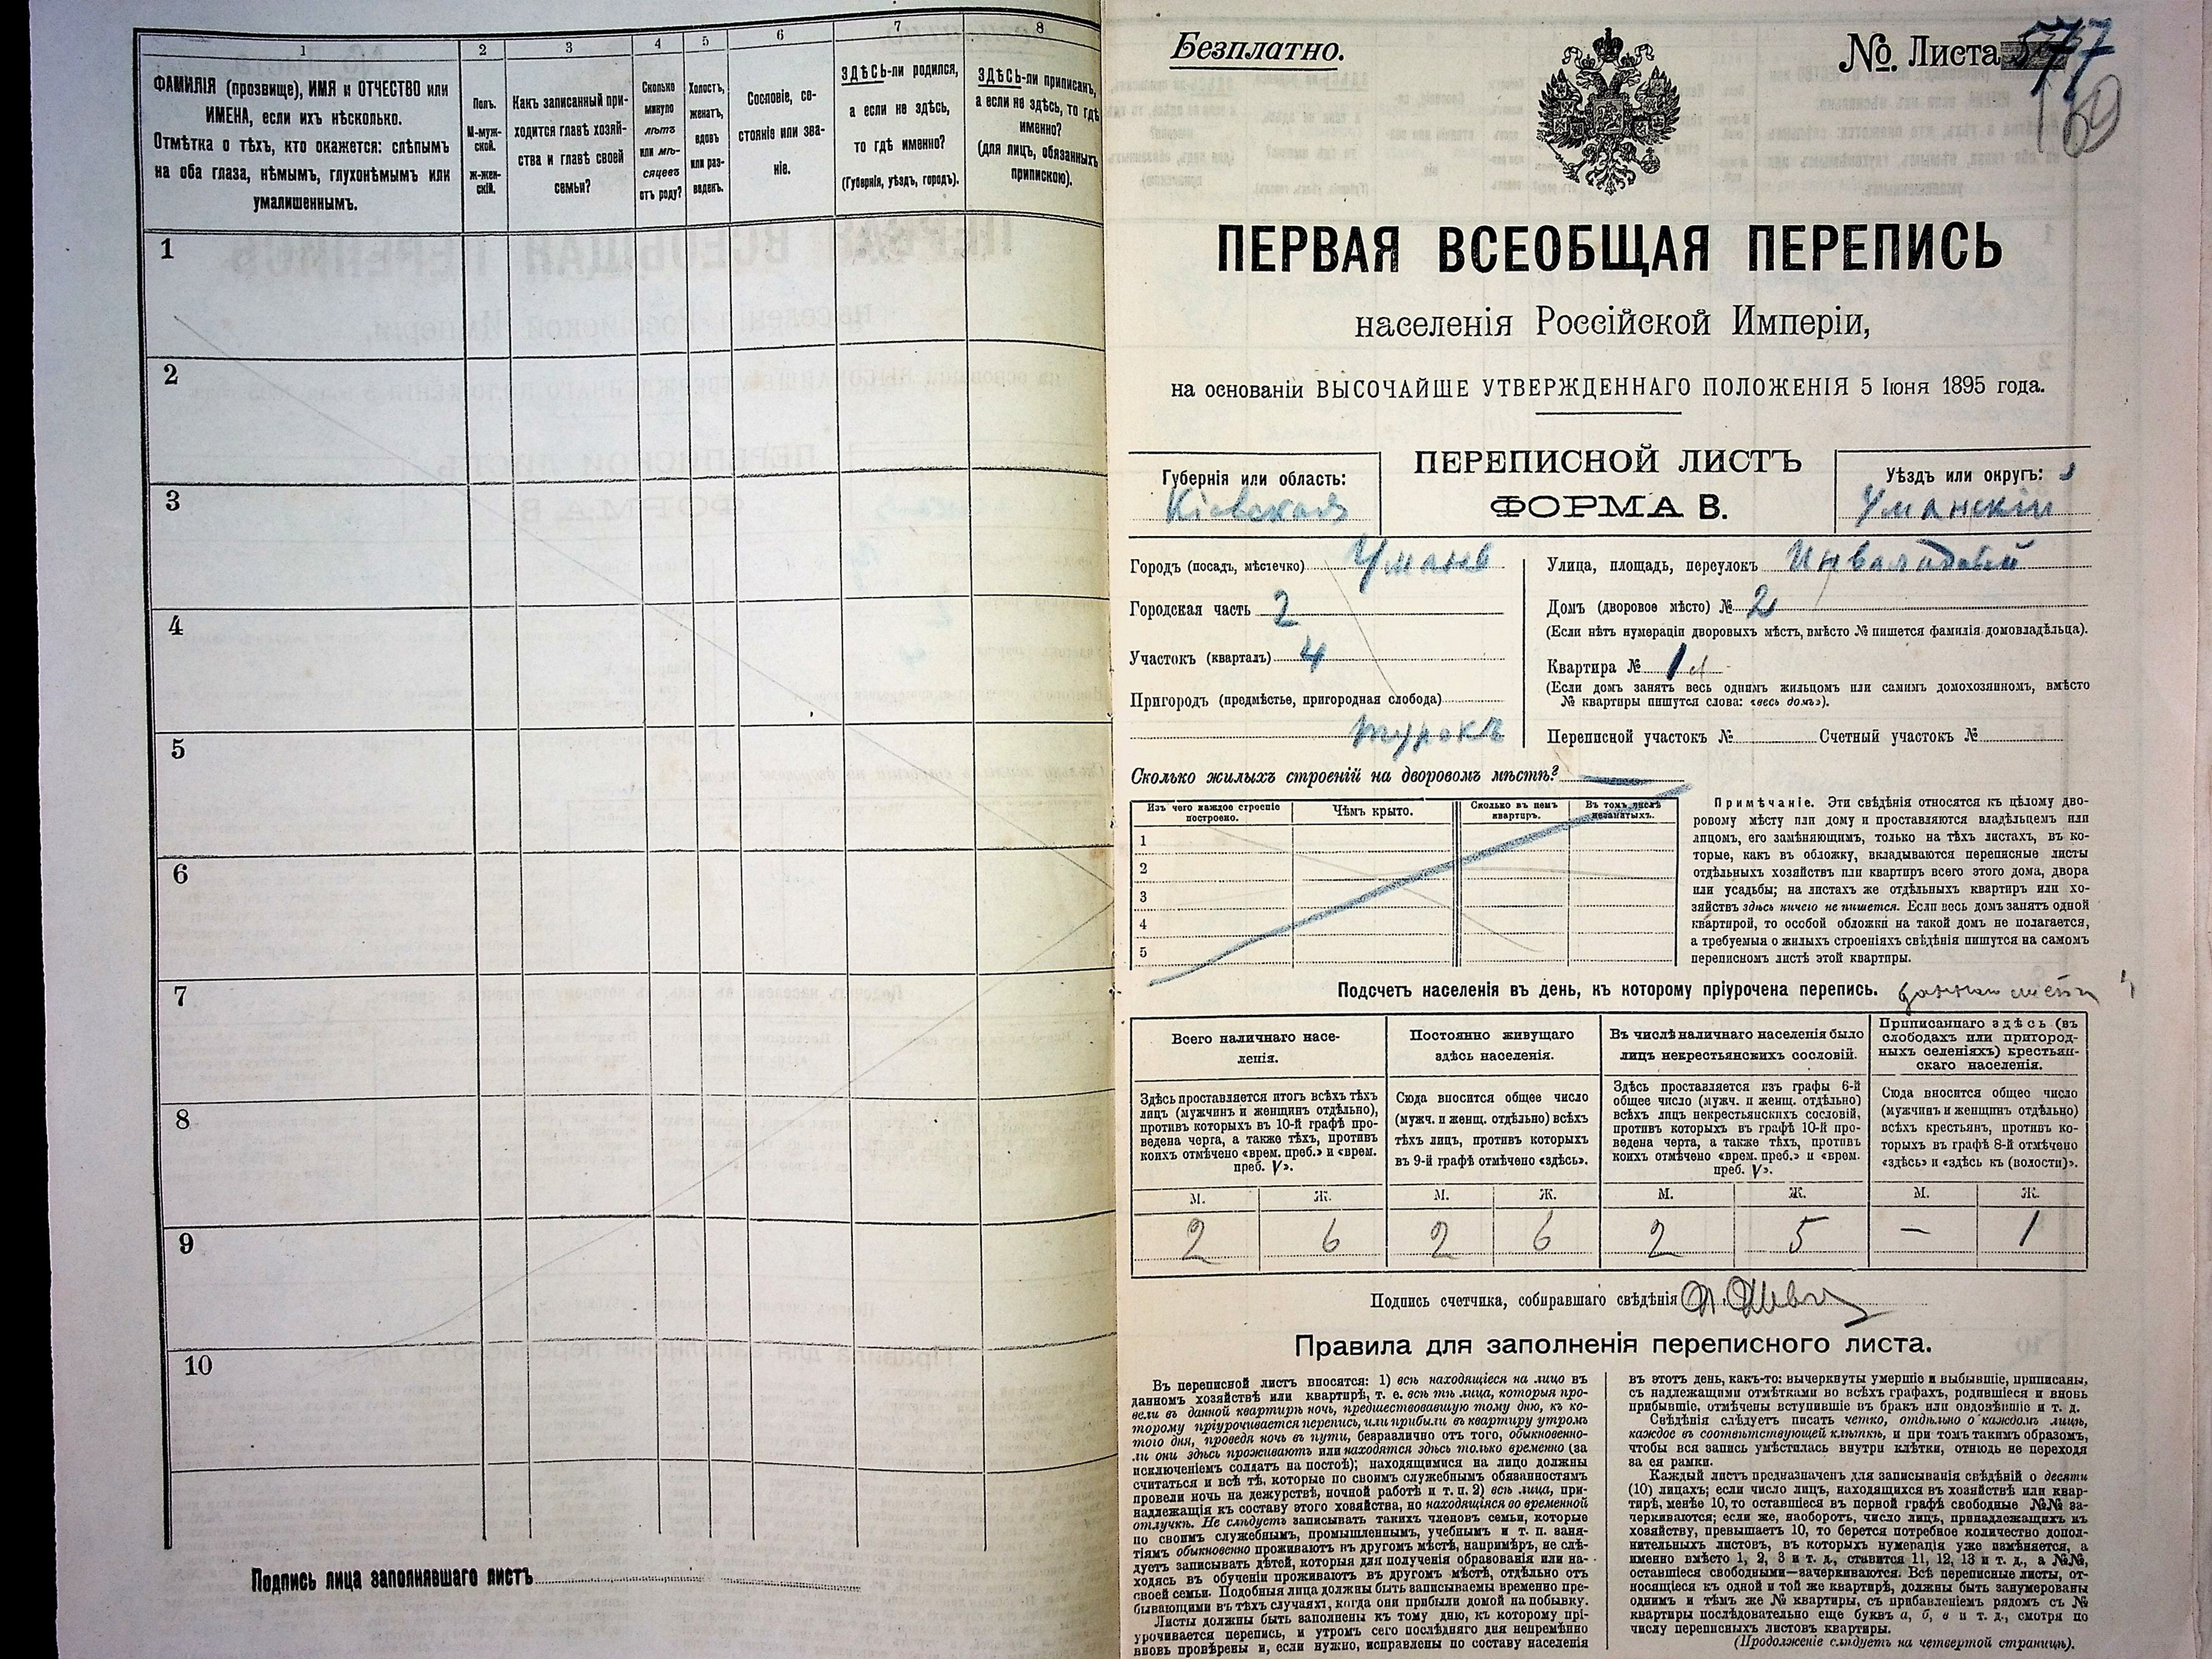 1
2
3
4
5
6
7
8
ФАМИЛІЯ (прозвище), ИМЯ и ОТЧЕСТВО или
ИМЕНА, если ихъ нѣсколько.
Отмѣтка о тѣхъ, кто окажется: слѣпымъ
на оба глаза, нѣмымъ, глухонѣмымъ или
умалишеннымъ.
Полъ.
М-муж-
ской.
Ж-жен-
скій.
Какъ записанный при-
ходится главѣ хозяй-
ства и главѣ своей
семьи?
Сколько
минуло
лѣтъ
или мѣ-
сяцевъ
отъ роду?
Холостъ,
женатъ,
вдовъ
или раз-
веденъ.
Сословіе, со-
стояніе или зва-
ніе.
ЗДѢСЬ-ли родился,
а если не здѣсь,
то гдѣ именно?
(Губернія, уѣздъ, городъ).
ЗДѢСЬ-ли приписанъ,
а если не здѣсь, то гдѣ
именно?
(для лицъ, обязанныхъ
припискою).
1
2
3
4
5
6
7
8
9
10
Подпись лица заполнявшаго листъ
Безплатно.
№ Листа 577
ПЕРВАЯ ВСЕОБЩАЯ ПЕРЕПИСЬ
населенія Россійской Имперіи,
на основаніи ВЫСОЧАЙШЕ УТВЕРЖДЕННАГО ПОЛОЖЕНІЯ 5 Іюня 1895 года.
Губернія или область:
Кіевская
ПЕРЕПИСНОЙ ЛИСТЪ
ФОРМА В.
Уѣздъ или округъ:
Уманскій
Городъ (посадъ, мѣстечко) Умань
Городская часть 2
Участокъ (кварталъ) 4
Пригородъ (предмѣстье, пригородная слобода)
Турокъ
Улица, площадь, переулокъ
Домъ (дворовое мѣсто) № 2
(Если нѣтъ нумераціи дворовыхъ мѣстъ, вмѣсто № пишется фамилія домовладѣльца).
Квартира № 1
(Если домъ занятъ весь однимъ жильцомъ или самимъ домохозяиномъ, вмѣсто
№ квартиры пишутся слова: «весь домъ»).
Переписной участокъ № Счетный участокъ №
Сколько жилыхъ строеній на дворовомъ мѣстѣ?
Изъ чего каждое строеніе
построено.
Чѣмъ крыто.
Сколько въ немъ
квартиръ.
Въ томъ числѣ
незанятыхъ.
1
2
3
4
5
Примѣчаніе. Эти свѣдѣнія относятся къ цѣлому дво-
ровому мѣсту или дому и проставляются владѣльцемъ или
лицомъ, его замѣняющимъ, только на тѣхъ листахъ, въ ко-
торые, какъ въ обложку, вкладываются переписные листы
отдѣльныхъ хозяйствъ или квартиръ всего этого дома, двора
или усадьбы; на листахъ же отдѣльныхъ квартиръ или хо-
зяйствъ здѣсь ничего не пишется. Если весь домъ занятъ одной
квартирой, то особой обложки на такой домъ не полагается,
а требуемыя о жилыхъ строеніяхъ свѣдѣнія пишутся на самомъ
переписномъ листѣ этой квартиры.
Подсчетъ населенія въ день, къ которому пріурочена перепись.
Всего наличнаго насе-
ленія.
Постоянно живущаго
здѣсь населенія.
Въ числѣ наличнаго населенія было
лицъ некрестьянскихъ сословій.
Приписаннаго здѣсь (въ
слободахъ или пригород-
ныхъ селеніяхъ) крестьян-
скаго населенія.
Здѣсь проставляется итогъ всѣхъ тѣхъ
лицъ (мужчинъ и женщинъ отдѣльно),
противъ которыхъ въ 10-й графѣ про-
ведена черта, а также тѣхъ, противъ
коихъ отмѣчено «врем. преб.» и «врем.
преб. V».
Сюда вносится общее число
(мужч. и женщ. отдѣльно) всѣхъ
тѣхъ лицъ, противъ которыхъ
въ 9-й графѣ отмѣчено «здѣсь».
Здѣсь проставляется изъ графы 6-й
общее число (мужч. и женщ. отдѣльно)
всѣхъ лицъ некрестьянскихъ сословій,
противъ которыхъ въ графѣ 10-й про-
ведена черта, а также тѣхъ, противъ
коихъ отмѣчено «врем. преб.» и «врем.
преб. V».
Сюда вносится общее число
(мужчинъ и женщинъ отдѣльно)
всѣхъ крестьянъ, противъ ко-
торыхъ въ графѣ 8-й отмѣчено
«здѣсь» и «здѣсь къ (волости)».
М. Ж. М. Ж. М. Ж. М. Ж.
2 6 2 6 2 5 — 1
Подпись счетчика, собиравшаго свѣдѣнія
Правила для заполненія переписного листа.
Въ переписной листъ вносятся: 1) всѣ находящіеся на лицо въ
данномъ хозяйствѣ или квартирѣ, т. е. всѣ тѣ лица, которыя про-
вели въ данной квартирѣ ночь, предшествовавшую тому дню, къ ко-
торому пріурочивается перепись, или прибыли въ квартиру утромъ
того дня, проведя ночь въ пути, безразлично отъ того, обыкновенно-
ли они здѣсь проживаютъ или находятся здѣсь только временно (за
исключеніемъ солдатъ на постоѣ); находящимися на лицо должны
считаться и всѣ тѣ, которые по своимъ служебнымъ обязанностямъ
провели ночь на дежурствѣ, ночной работѣ и т. п. 2) всѣ лица, при-
надлежащія къ составу этого хозяйства, но находящіяся во временной
отлучкѣ. Не слѣдуетъ записывать такихъ членовъ семьи, которые
по своимъ служебнымъ, промышленнымъ, учебнымъ и т. п. заня-
тіямъ обыкновенно проживаютъ въ другомъ мѣстѣ, напримѣръ, не слѣ-
дуетъ записывать дѣтей, которыя для полученія образованія или на-
ходясь въ обученіи проживаютъ въ другомъ мѣстѣ, отдѣльно отъ
своей семьи. Подобныя лица должны быть записываемы временно пре-
бывающими въ тѣхъ случаяхъ, когда они прибыли домой на побывку.
Листы должны быть заполнены къ тому дню, къ которому прі-
урочивается перепись, и утромъ сего послѣдняго дня непремѣнно
вновь провѣрены и, если нужно, исправлены по составу населенія
въ этотъ день, какъ-то: вычеркнуты умершіе и выбывшіе, приписаны,
съ надлежащими отмѣтками во всѣхъ графахъ, родившіеся и вновь
прибывшіе, отмѣчены вступившіе въ бракъ или овдовѣвшіе и т. д.
Свѣдѣнія слѣдуетъ писать четко, отдѣльно о каждомъ лицѣ,
каждое въ соотвѣтствующей клѣткѣ, и при томъ такимъ образомъ,
чтобы вся запись умѣстилась внутри клѣтки, отнюдь не переходя
за ея рамки.
Каждый листъ предназначенъ для записыванія свѣдѣній о десяти
(10) лицахъ; если число лицъ, находящихся въ хозяйствѣ или квар-
тирѣ, менѣе 10, то оставшіеся въ первой графѣ свободные №№ за-
черкиваются; если же, наоборотъ, число лицъ, принадлежащихъ къ
хозяйству, превышаетъ 10, то берется потребное количество допол-
нительныхъ листовъ, въ которыхъ нумерація уже измѣняется, а
именно вмѣсто 1, 2, 3 и т. д., ставится 11, 12, 13 и т. д., а №№,
оставшіеся свободными—зачеркиваются. Всѣ переписные листы, от-
носящіеся къ одной и той же квартирѣ, должны быть занумерованы
однимъ и тѣмъ же № квартиры, съ прибавленіемъ рядомъ съ №
квартиры послѣдовательно еще буквъ а, б, в и т. д., смотря по
числу переписныхъ листовъ квартиры.
(Продолженіе слѣдуетъ на четвертой страницѣ).